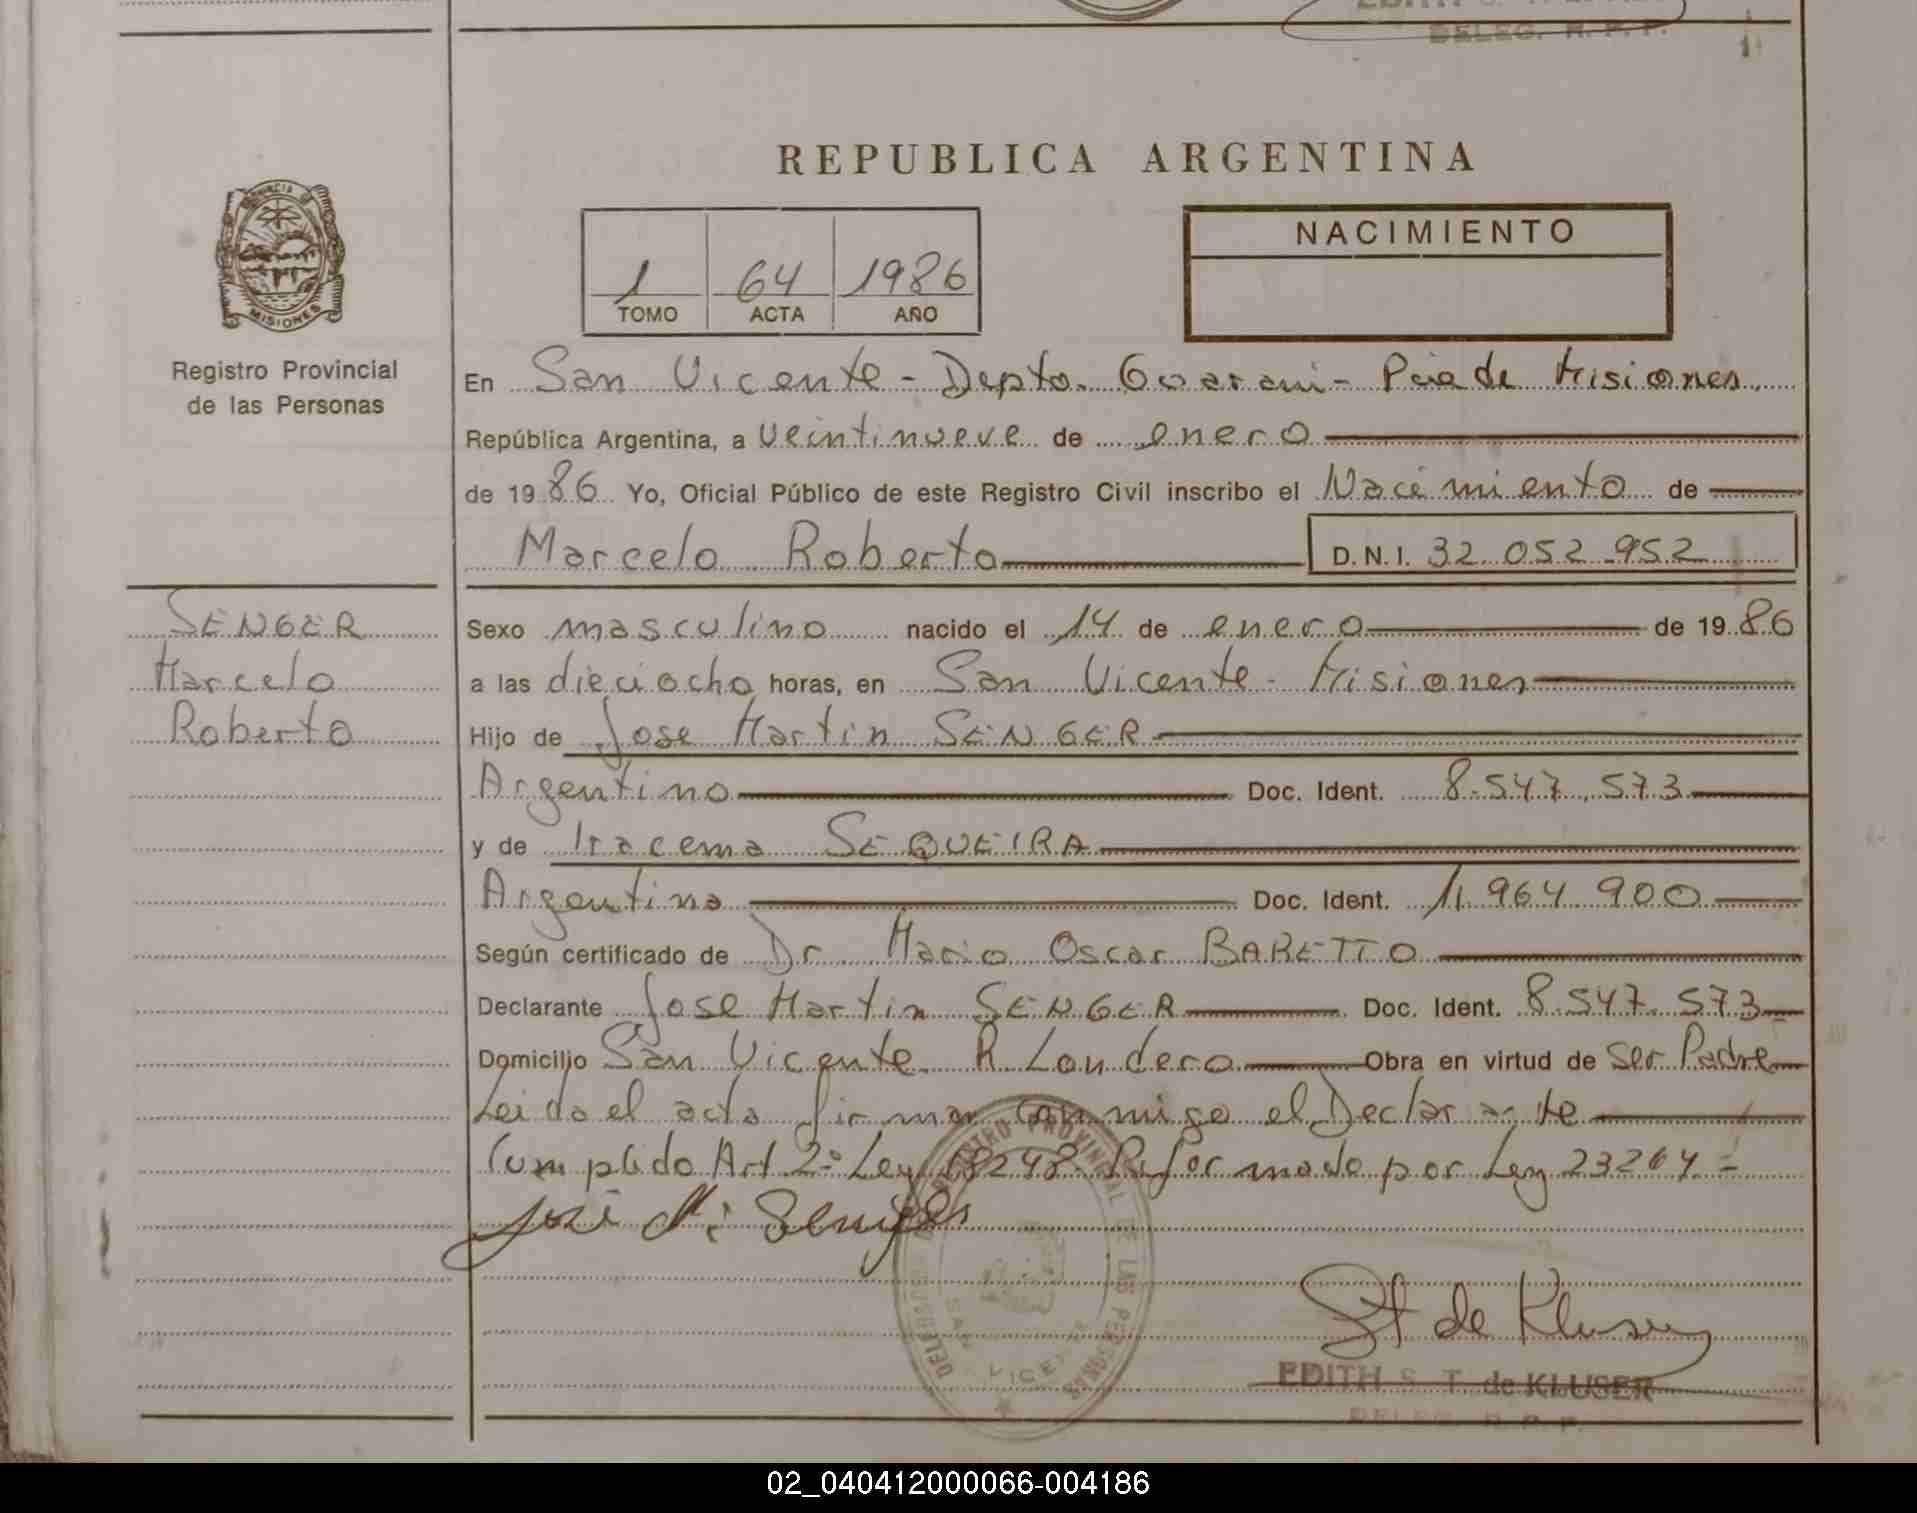 DELEG. R. P. P.
REPUBLICA ARGENTINA
PROVINCIA DE
MISIONES
Registro Provincial
de las Personas
1 64 1986
TOMO ACTA AÑO
NACIMIENTO
En San Vicente - Depto. Guarani - Pcia de Misiones.
República Argentina, a veintinueve de enero
de 1986 Yo, Oficial Público de este Registro Civil inscribo el Nacimiento de
Marcelo Roberto D.N.I. 32.052.952
SENGER
Marcelo
Roberto
Sexo masculino nacido el 14 de enero de 1986
a las dieciocho horas, en San Vicente - Misiones
Hijo de Jose Martin SENGER
Argentino Doc. Ident. 8.547.573
y de Iracema SEQUEIRA
Argentina Doc. Ident. 11.964.900
Según certificado de Dr. Mario Oscar BARETTO
Declarante Jose Martin SENGER Doc. Ident. 8.547.573
Domicilio San Vicente. R. Londero Obra en virtud de Ser Padre
Leida el acta firma conmigo el Declarante
Cumplido Art. 2º Ley 18248. Reformado por Ley 23264 -
José M. Senger
REGISTRO PROVINCIAL DE LAS PERSONAS
SAN VICENTE
St de Kluser
EDITH S. T. de KLUSER
DELEG. R. P. P.
02_040412000066-004186